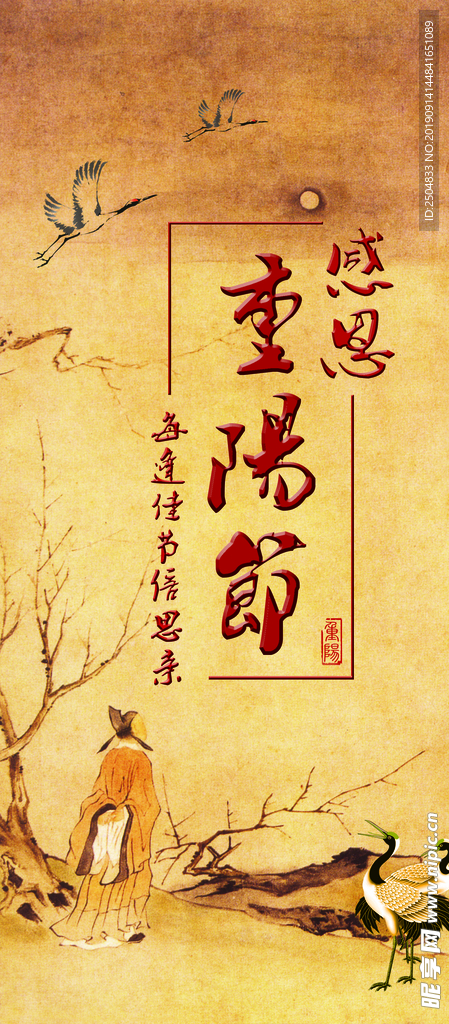 感恩
重陽節
每逢佳节倍思亲
重陽
ID:2504833 NO:20190914144841651089
昵享网 www.nipic.cn